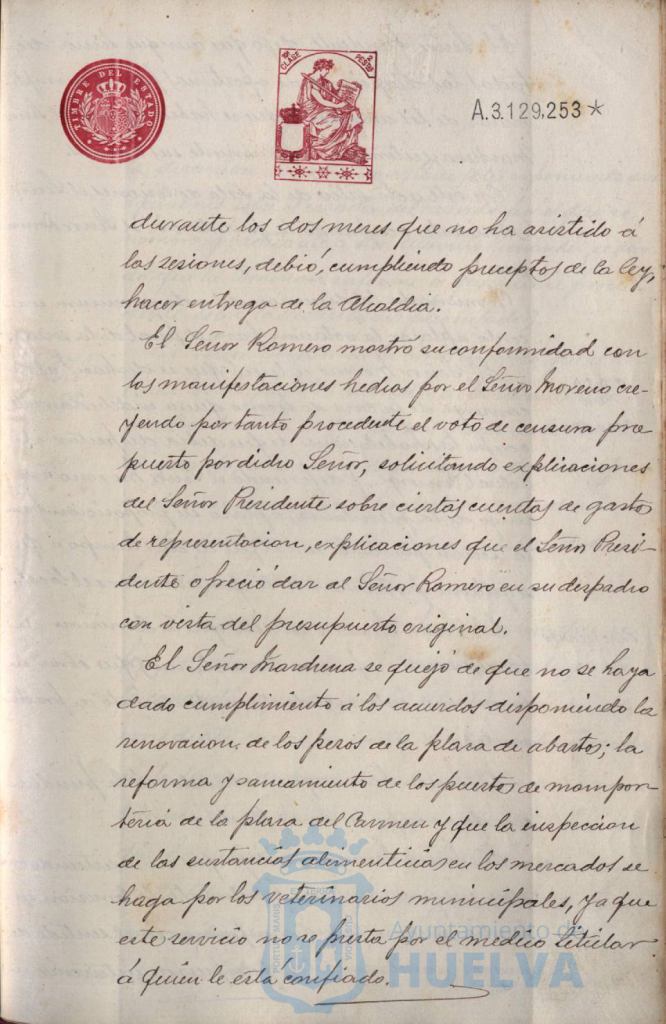 TIMBRE DEL ESTADO
10ª CLASE
PESETAS
A.3.129,253*
durante los dos meses que no ha asistido á
las sesiones, debió, cumpliendo preceptos de la ley,
hacer entrega de la Alcaldia.
El Señor Romero mostró su conformidad con
las manifestaciones hechas por el Señor Moreno cre-
yendo por tanto procedente el voto de censura pro
puesto por dicho Señor, solicitando explicaciones
del Señor Presidente sobre ciertas cuentas de gastos
de representacion, explicaciones que el Señor Presi-
dente ofreció dar al Señor Romero en su despacho
con vista del presupuesto original.
El Señor Marchena se quejó de que no se haya
dado cumplimiento á los acuerdos disponiendo la
renovacion de los pesos de la plaza de abastos; la
reforma y saneamiento de los puestos de mampos-
tería de la plaza del Carmen y que la inspeccion
de las sustancias alimenticias en los mercados se
haga por los veterinarios municipales, ya que
este servicio no se presta por el medico titular
á quien le está confiado.
Ayuntamiento de
HUELVA